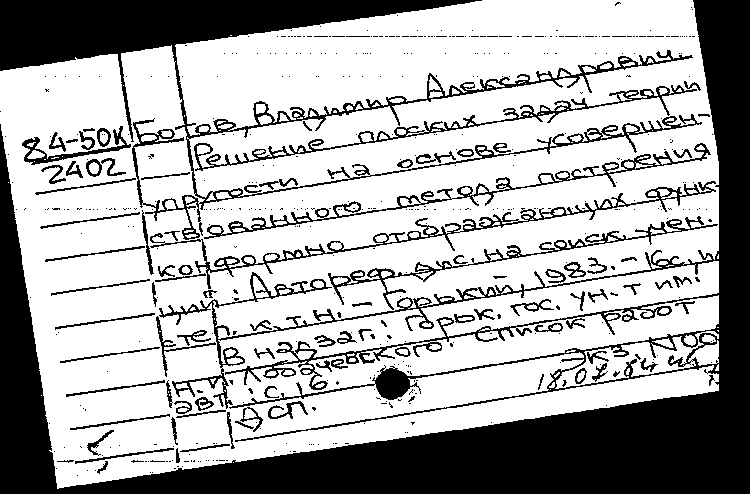 84-50К
2402
Ботов, Владимир Александрович.
Решение плоских задач теории
упругости на основе усовершен-
ствованного метода построения
конформно отображающих функ-
ций : Автореф. дис. на соиск. учен.
степ. к. т. н. - Горький, 1983. - 16с., ил
В надзаг.: Горьк. гос. ун-т им.
Н.И. Лобачевского. Список работ
авт.: с. 16.
Экз. N00
18.01.84
Д сп.